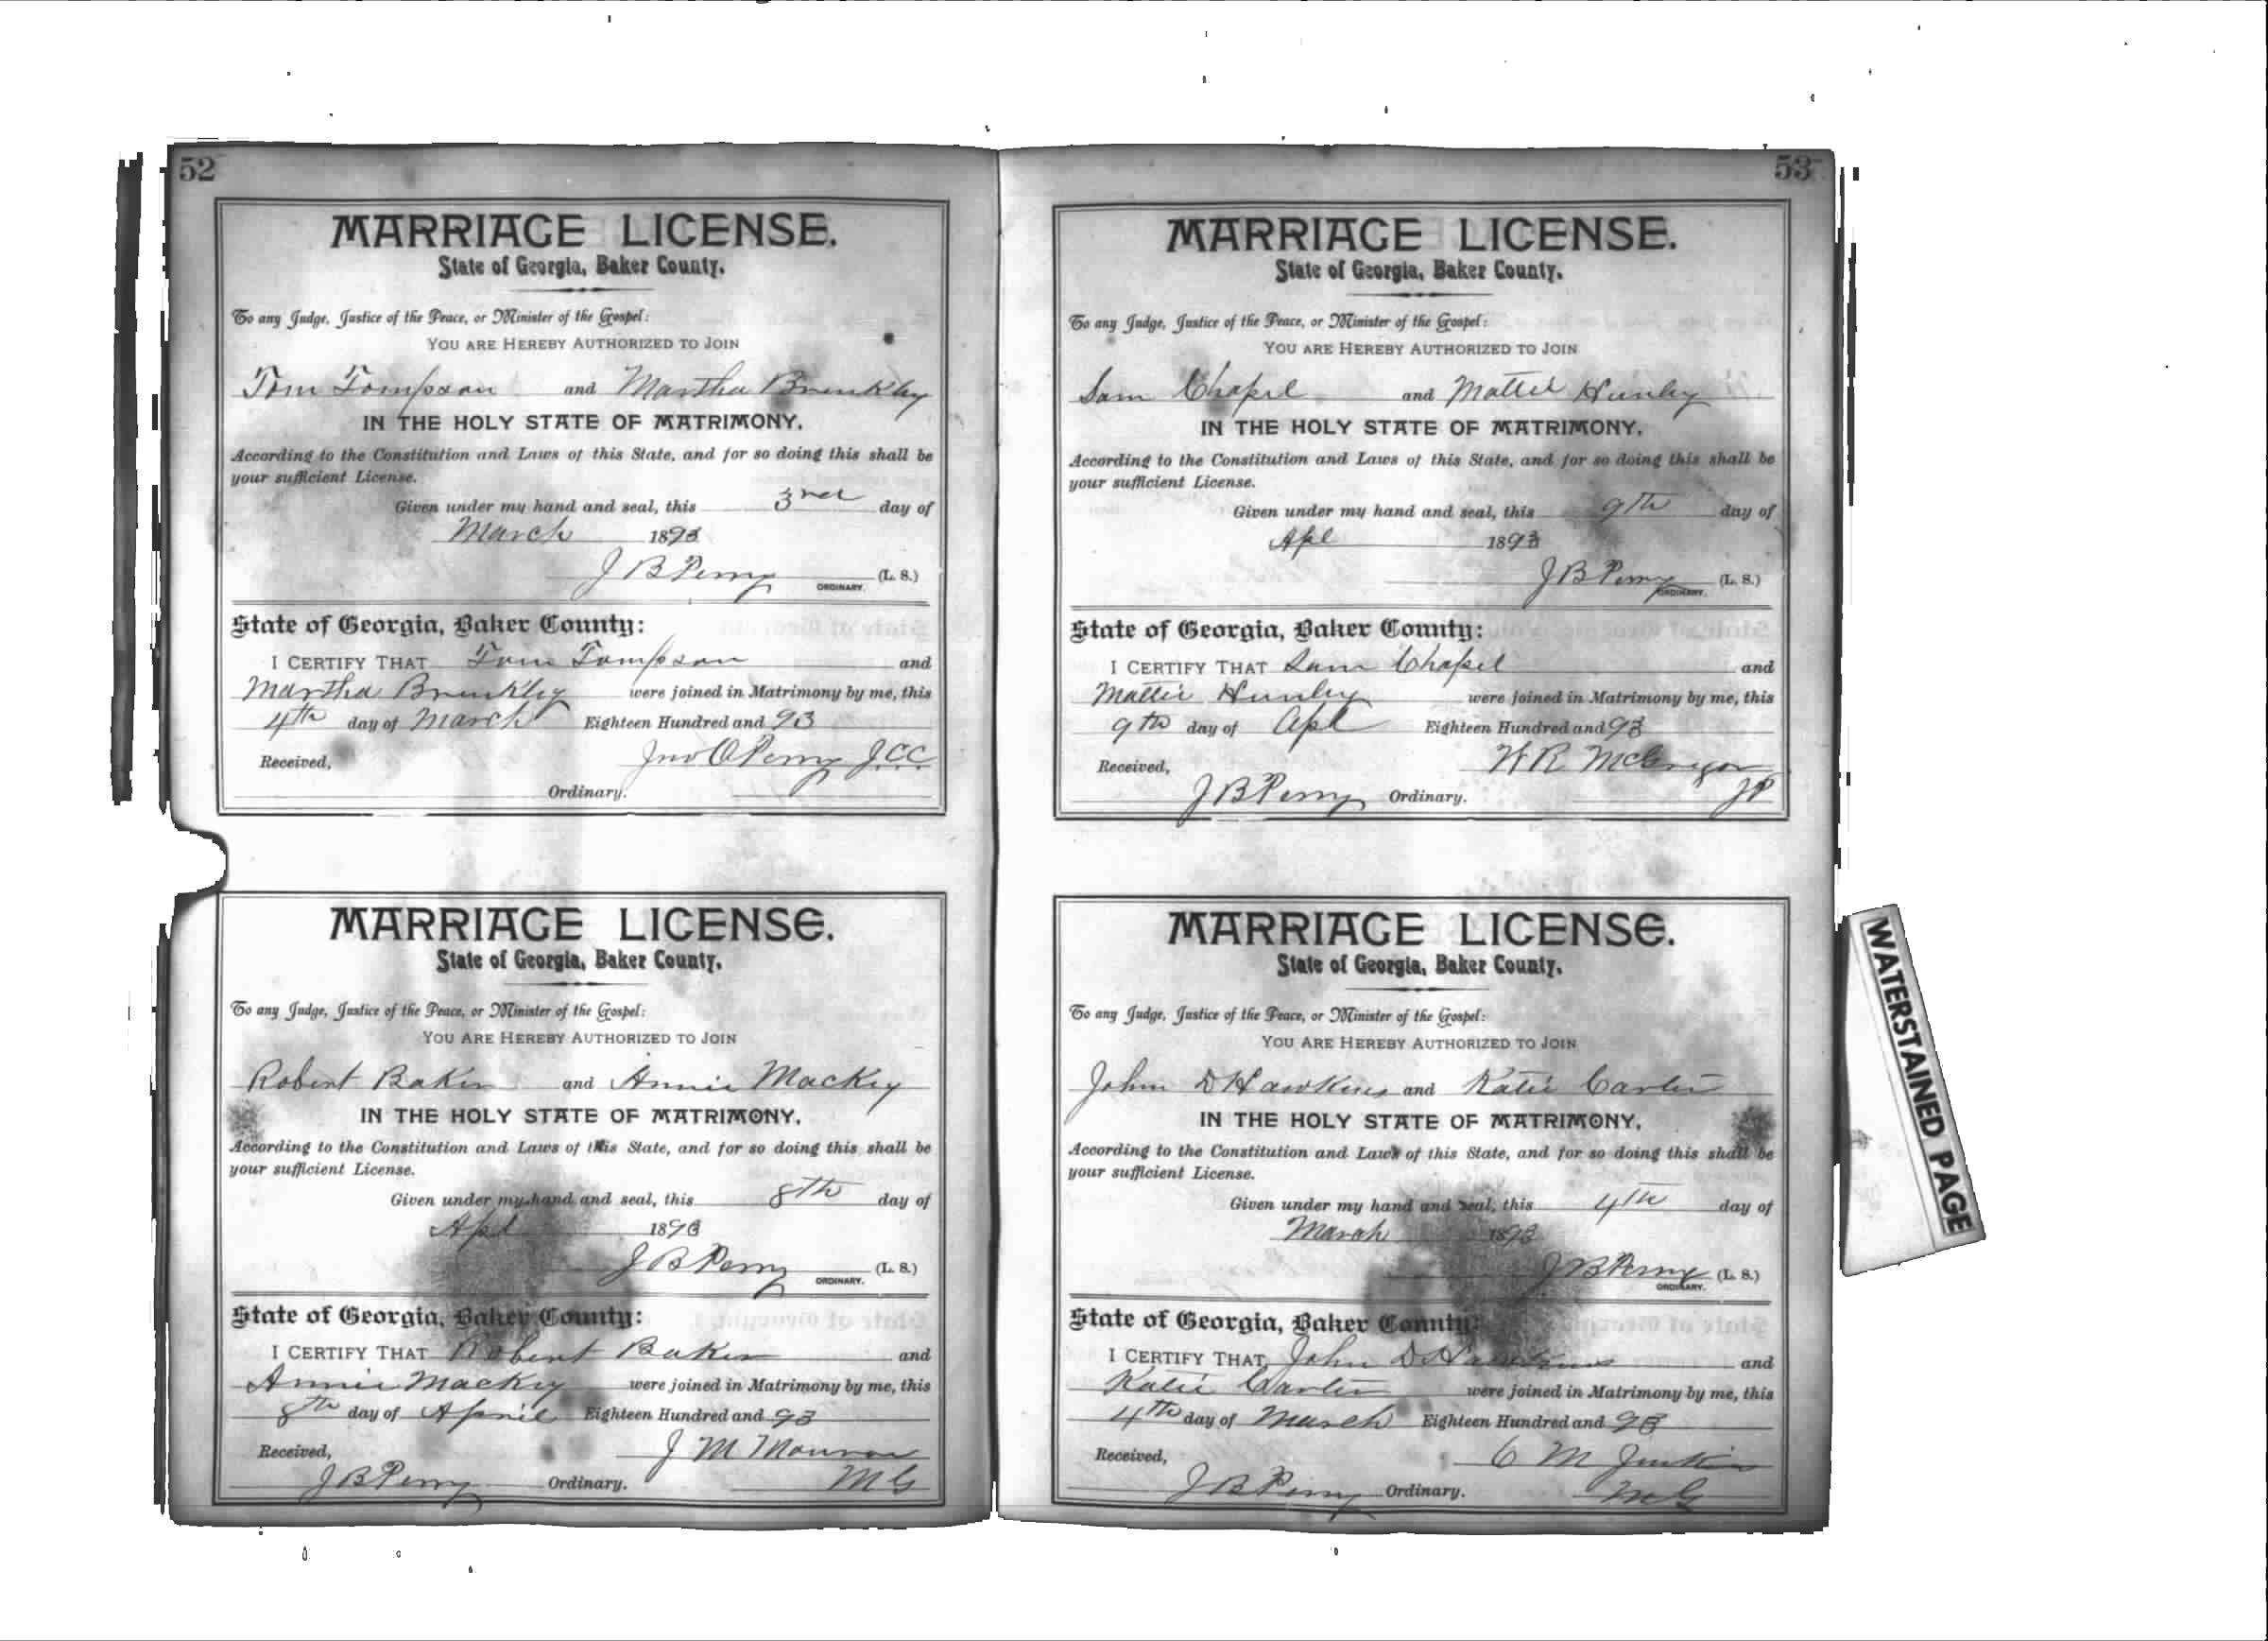 52
MARRIAGE LICENSE.
State of Georgia, Baker County.
To any Judge, Justice of the Peace, or Minister of the Gospel:
YOU ARE HEREBY AUTHORIZED TO JOIN
Tom Tompson and Martha Brinkley
IN THE HOLY STATE OF MATRIMONY,
According to the Constitution and Laws of this State, and for so doing this shall be
your sufficient License.
Given under my hand and seal, this 3rd day of
March 1893
J B Perry (L. S.)
ORDINARY.
State of Georgia, Baker County:
I CERTIFY THAT Tom Tompson and
Martha Brinkley were joined in Matrimony by me, this
4th day of March Eighteen Hundred and 93
Received, Jno O Perry J.C.C.
Ordinary.
MARRIAGE LICENSE.
State of Georgia, Baker County.
To any Judge, Justice of the Peace, or Minister of the Gospel:
YOU ARE HEREBY AUTHORIZED TO JOIN
Robert Baker and Annie Mackey
IN THE HOLY STATE OF MATRIMONY,
According to the Constitution and Laws of this State, and for so doing this shall be
your sufficient License.
Given under my hand and seal, this 8th day of
Apl 1893
J B Perry (L. S.)
ORDINARY.
State of Georgia, Baker County:
I CERTIFY THAT Robert Baker and
Annie Mackey were joined in Matrimony by me, this
8th day of April Eighteen Hundred and 93
Received, J M Monroe
J B Perry Ordinary. M G
53
MARRIAGE LICENSE.
State of Georgia, Baker County.
To any Judge, Justice of the Peace, or Minister of the Gospel:
YOU ARE HEREBY AUTHORIZED TO JOIN
Sam Chapel and Mattie Hunley
IN THE HOLY STATE OF MATRIMONY,
According to the Constitution and Laws of this State, and for so doing this shall be
your sufficient License.
Given under my hand and seal, this 9th day of
Apl 1893
J B Perry (L. S.)
ORDINARY.
State of Georgia, Baker County:
I CERTIFY THAT Sam Chapel and
Mattie Hunley were joined in Matrimony by me, this
9th day of Apl Eighteen Hundred and 93
Received, W R McGregor
J B Perry Ordinary. J P
MARRIAGE LICENSE.
State of Georgia, Baker County.
To any Judge, Justice of the Peace, or Minister of the Gospel:
YOU ARE HEREBY AUTHORIZED TO JOIN
John D Hawkins and Katie Carter
IN THE HOLY STATE OF MATRIMONY,
According to the Constitution and Laws of this State, and for so doing this shall be
your sufficient License.
Given under my hand and seal, this 4th day of
March 1893
J B Perry (L. S.)
ORDINARY.
State of Georgia, Baker County:
I CERTIFY THAT John D Hawkins and
Katie Carter were joined in Matrimony by me, this
4th day of March Eighteen Hundred and 93
Received, C M Jenkins
J B Perry Ordinary. M G
WATERSTAINED PAGE